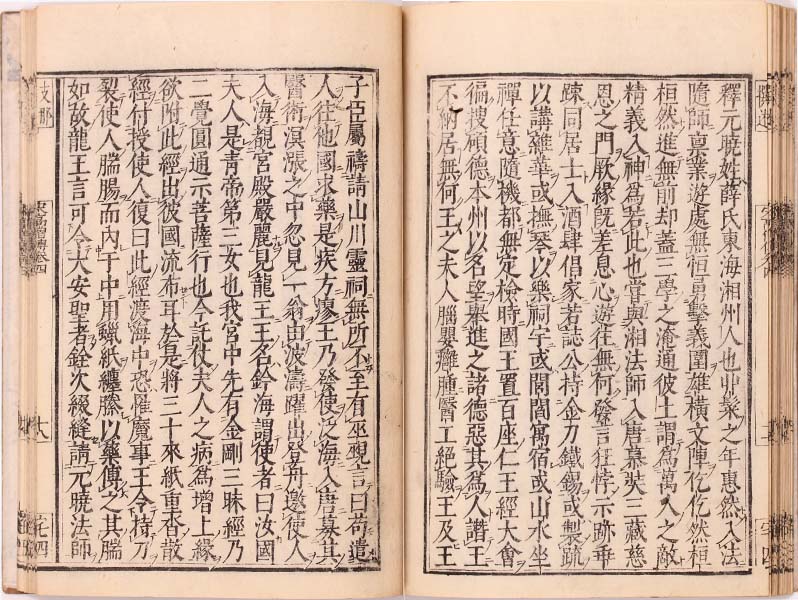 釋元曉姓薛氏東海湘州人也丱髮之年惠然入法
隨師稟業遊處無恒勇擊義圍雄橫文陣仡仡然桓
桓然進無前却蓋三學之淹通彼土謂為萬人之敵
精義入神為若此也甞與湘法師入唐慕奘三藏慈
恩之門厥緣旣差息心遊往無何發言狂悖示跡乖
疎同居士入酒肆倡家若誌公持金刀鐵錫或製疏
以講雜華或撫琴以樂祠宇或閭閻寓宿或山水坐
禪任意隨機都無定檢時國王置百座仁王經大會
徧搜碩德本州以名望舉進之諸德惡其為人譖王
不納居無何王之夫人腦嬰癰腫醫工絕驗王及王
子臣屬禱請山川靈祠無所不至有巫覡言曰苟遣
人往他國求藥是疾方瘳王乃發使泛海入唐募其
醫術溟漲之中忽見一翁由波濤躍出登舟邀使人
入海覩宮殿嚴麗見龍王王名鈐海謂使者曰汝國
夫人是青帝第三女也我宮中先有金剛三昧經乃
二覺圓通示菩薩行也今託仗夫人之病為增上緣
欲附此經出彼國流布耳於是將三十來紙重沓散
經付授使人復曰此經渡海中恐罹魔事王令持刀
裂使人腨腸而內于中用蠟紙纏縢以藥傅之其腨
如故龍王言可令大安聖者銓次綴縫請元曉法師
支那
宋高僧傳卷四
十八